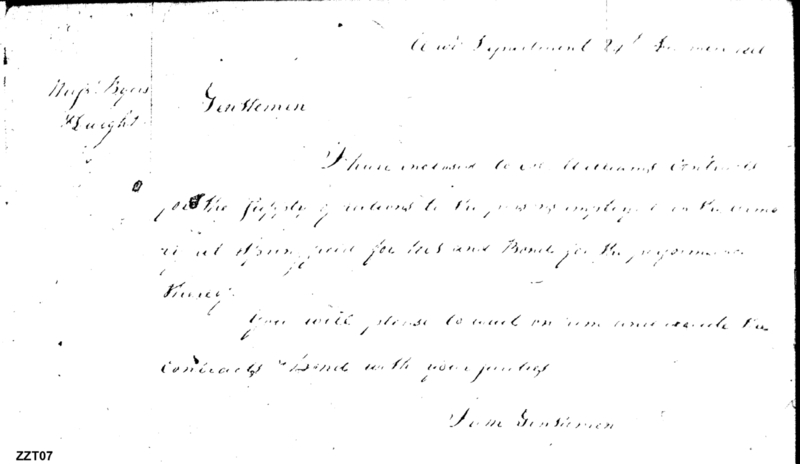 War Department 24th
Messrs. Byers
& Dwight
Gentlemen
I have inclosed to Mr. Williams Contracts
for the supply of rations to the persons employed in the
at Springfield for 1808 and Bond for the performance
thereof.
You will please to wait on him and execute the
contracts & Bond with your
I am Gentlemen
ZZT07